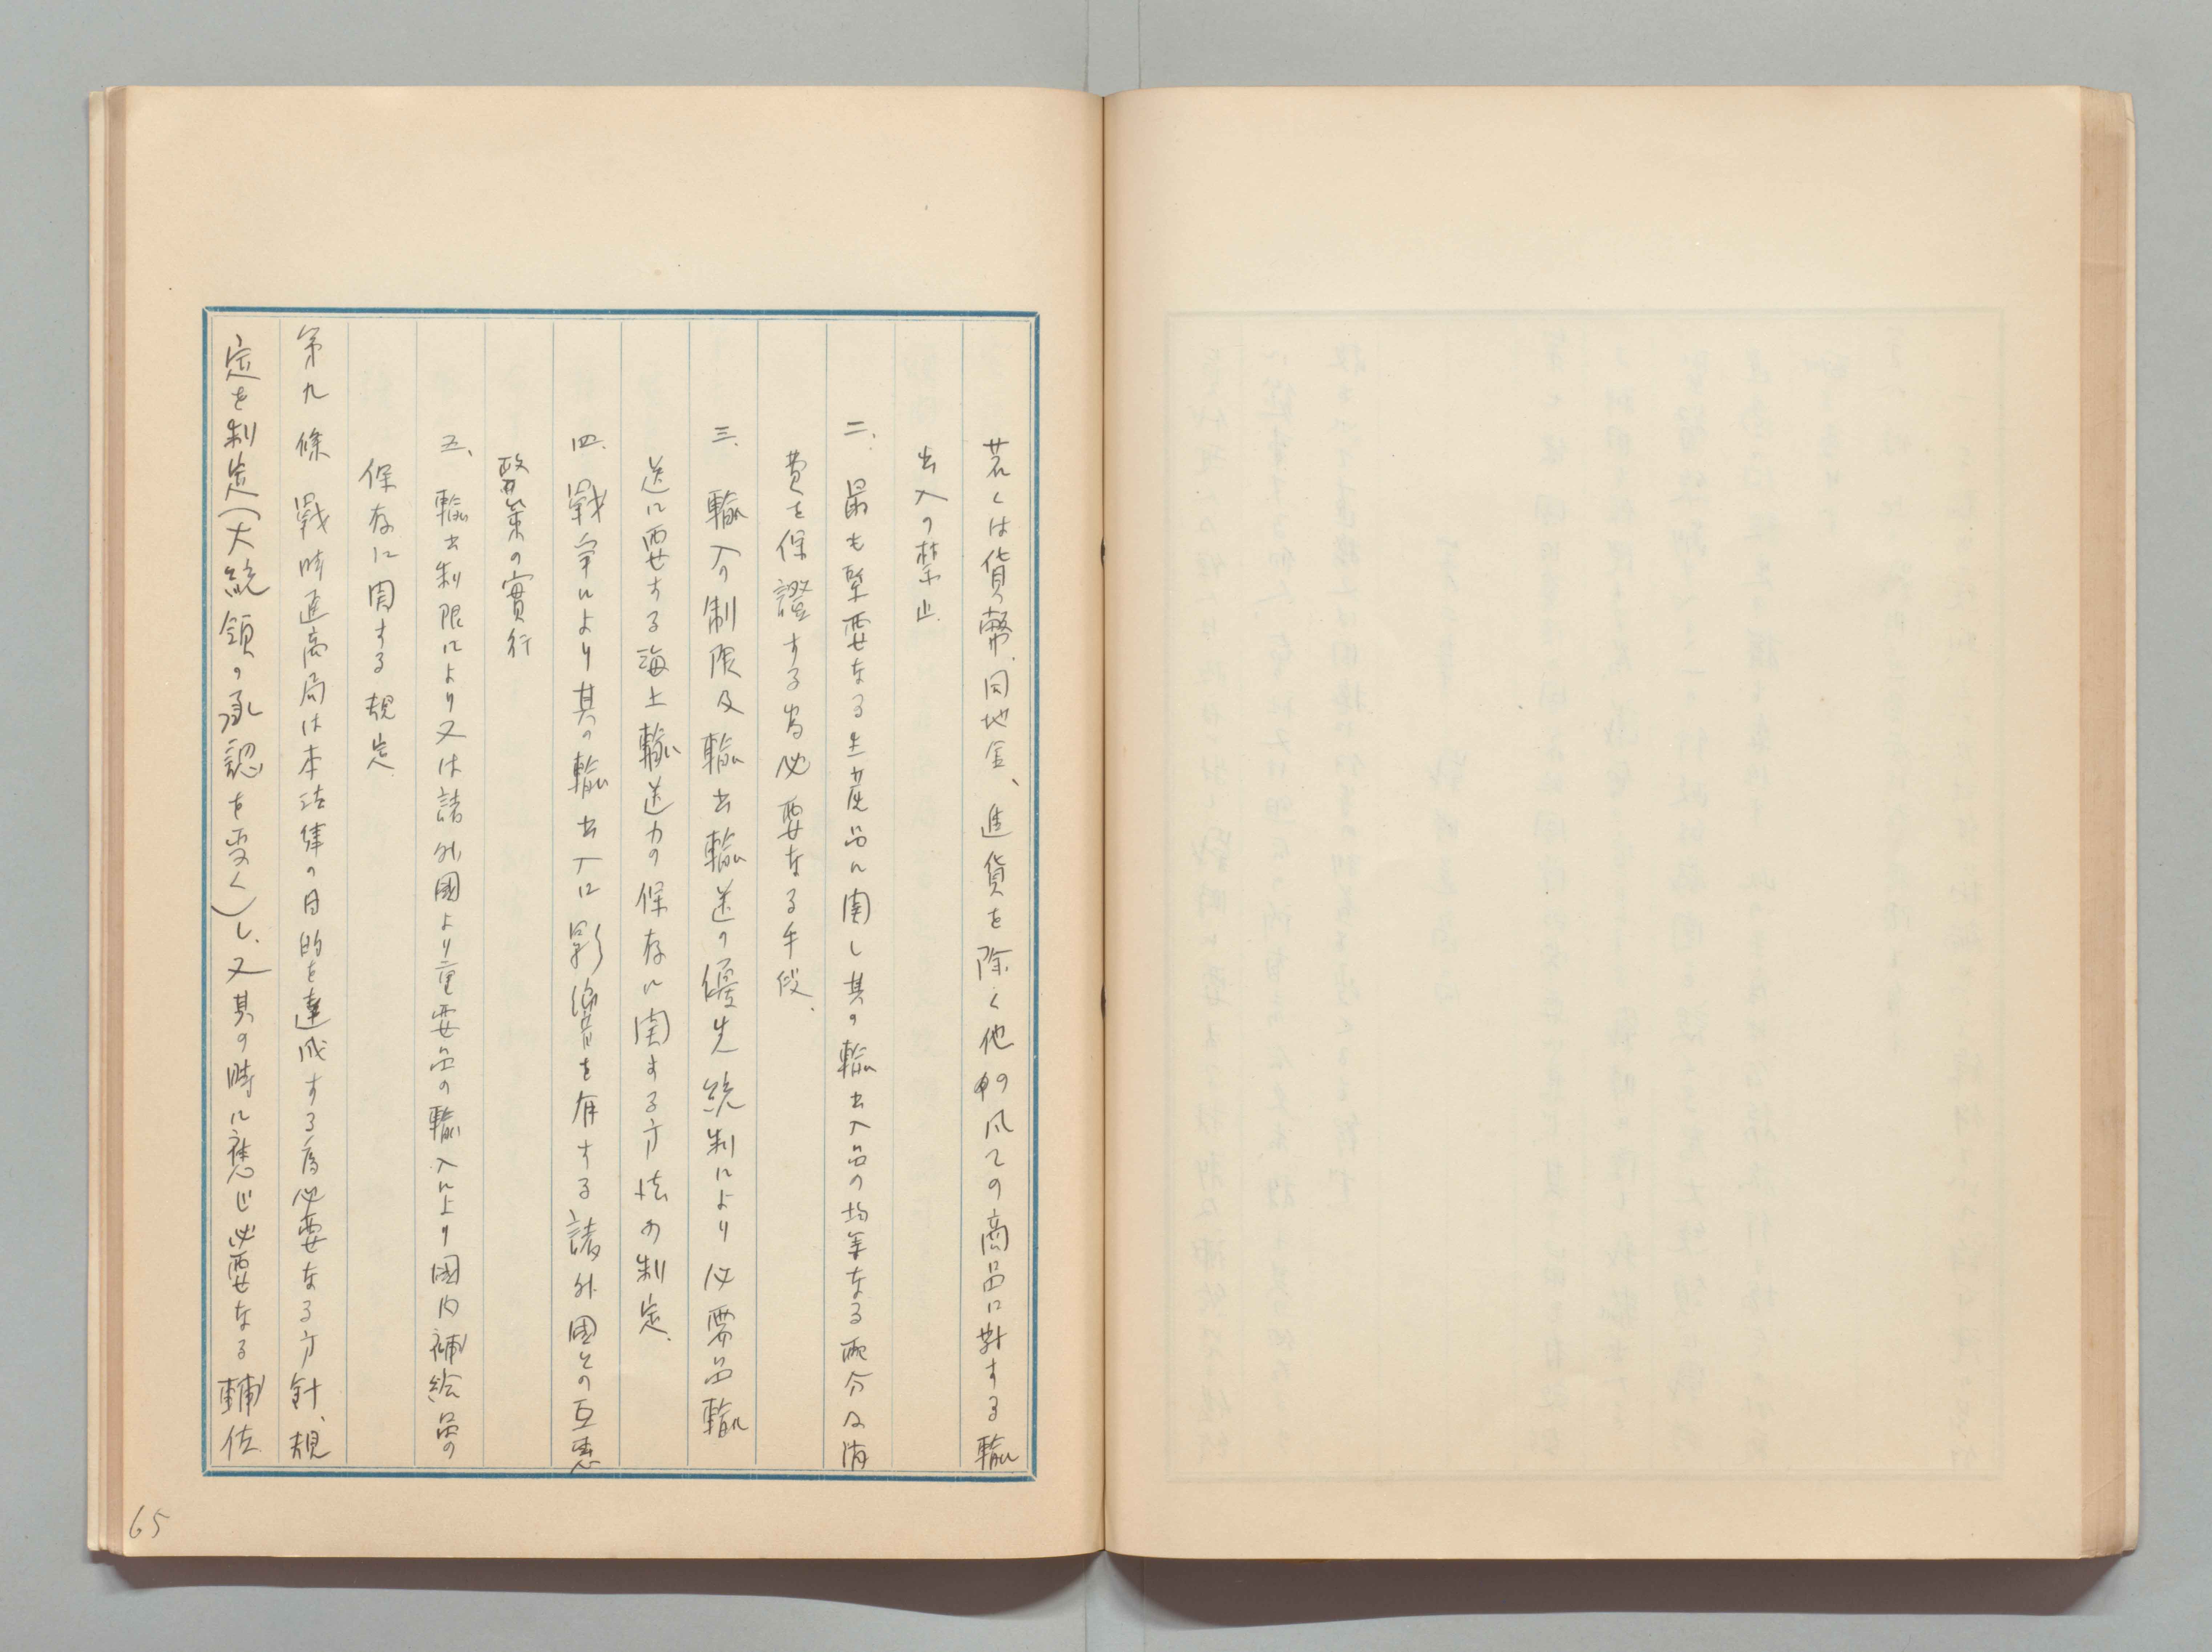 若くは貨幣、同地金、進貨を除く他の凡ての商品に対する輸
出入の禁止
二、最も緊要なる生産品に関し其の輸出入品の均等なる配分及消
費を保證する為必要なる手段、
三、輸入の制限及輸出輸送の優先統制により必需品輸
送に要する海上輸送力の保存に関する方法の制定、
四、戰争により其の輸出入に影響を有する諸外国との互恵
政策の實行
五、輸出制限により又は諸外國より重要品の輸入により國内補給品の
保存に関する規定
第九條 戰時通商局は本法律の目的を達成する為必要なる方針、規
定を制定(大統領の承認を受く)し、又其の時に應じ必要なる輔佐
65